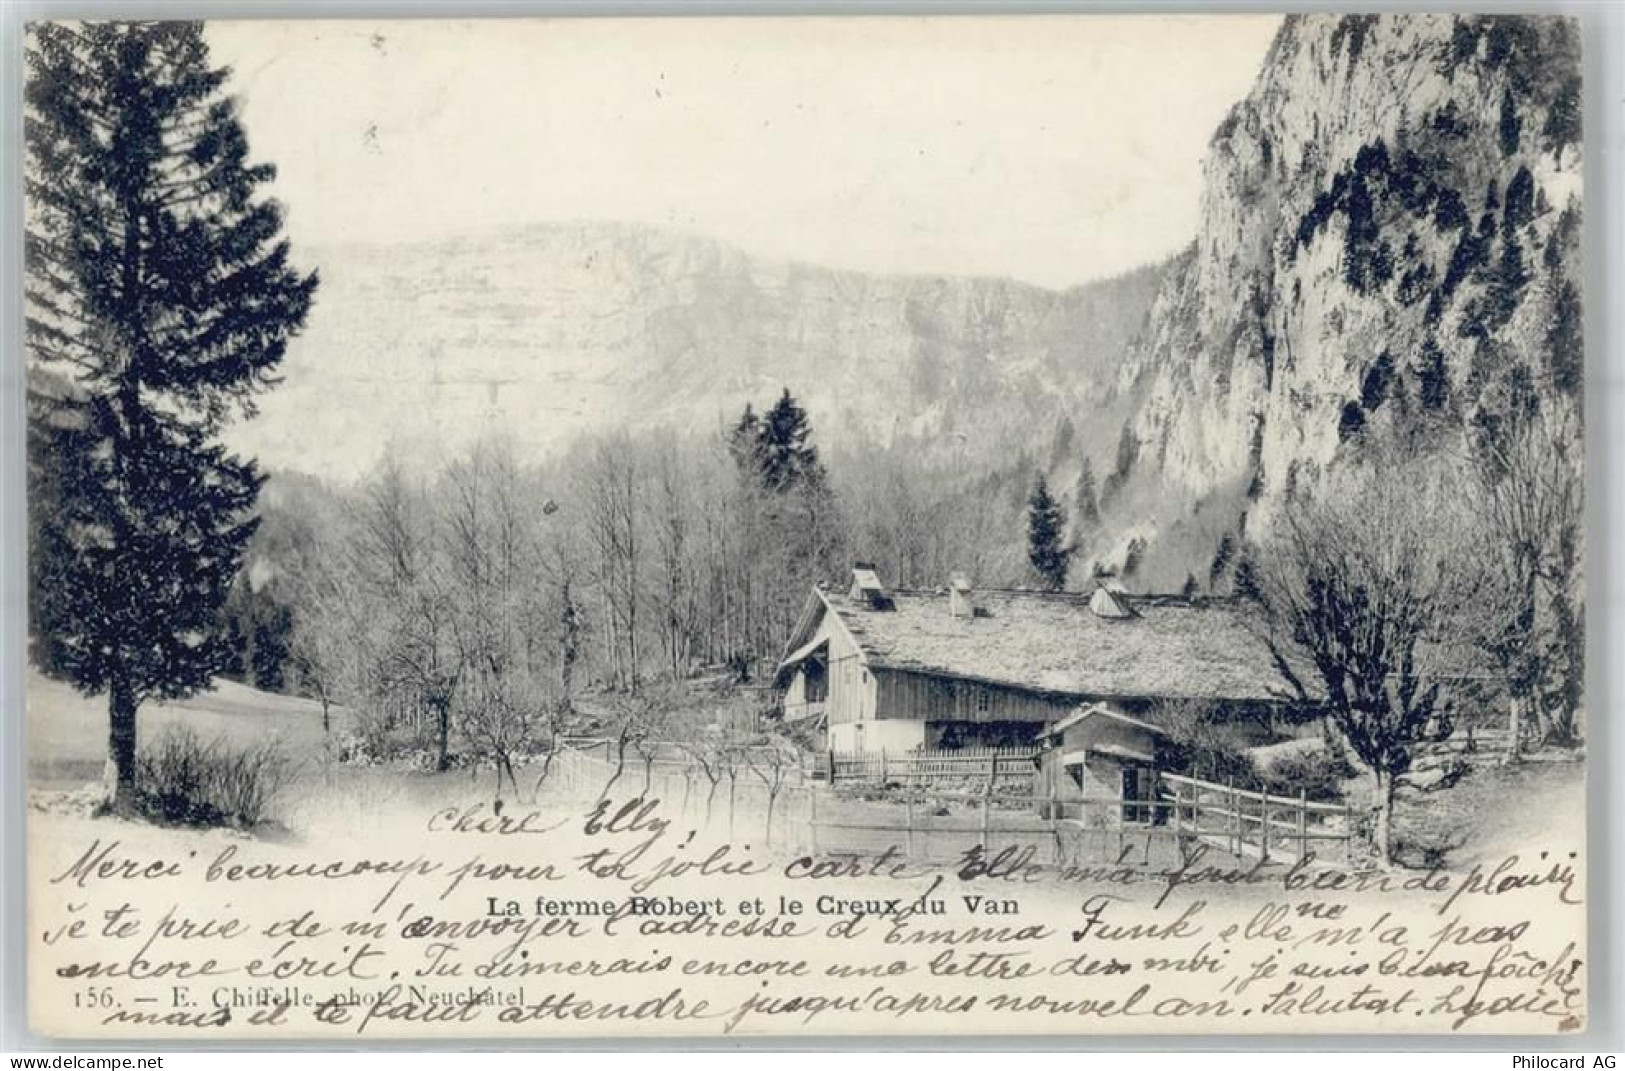 chère Elly,
Merci beaucoup pour ta jolie carte, Elle m'a fait bien de plaisir
La ferme Robert et le Creux du Van
je te prie de m'envoyer l'adresse d'Emma Funk, elle ne m'a pas
encore écrit. Tu aimerais encore une lettre de moi, je suis bien fâchée
156. — E. Chiffelle, phot. Neuchâtel
mais il te faut attendre jusqu'apres nouvel an. Salutat. Lydie
Philocard AG
delcampe.net